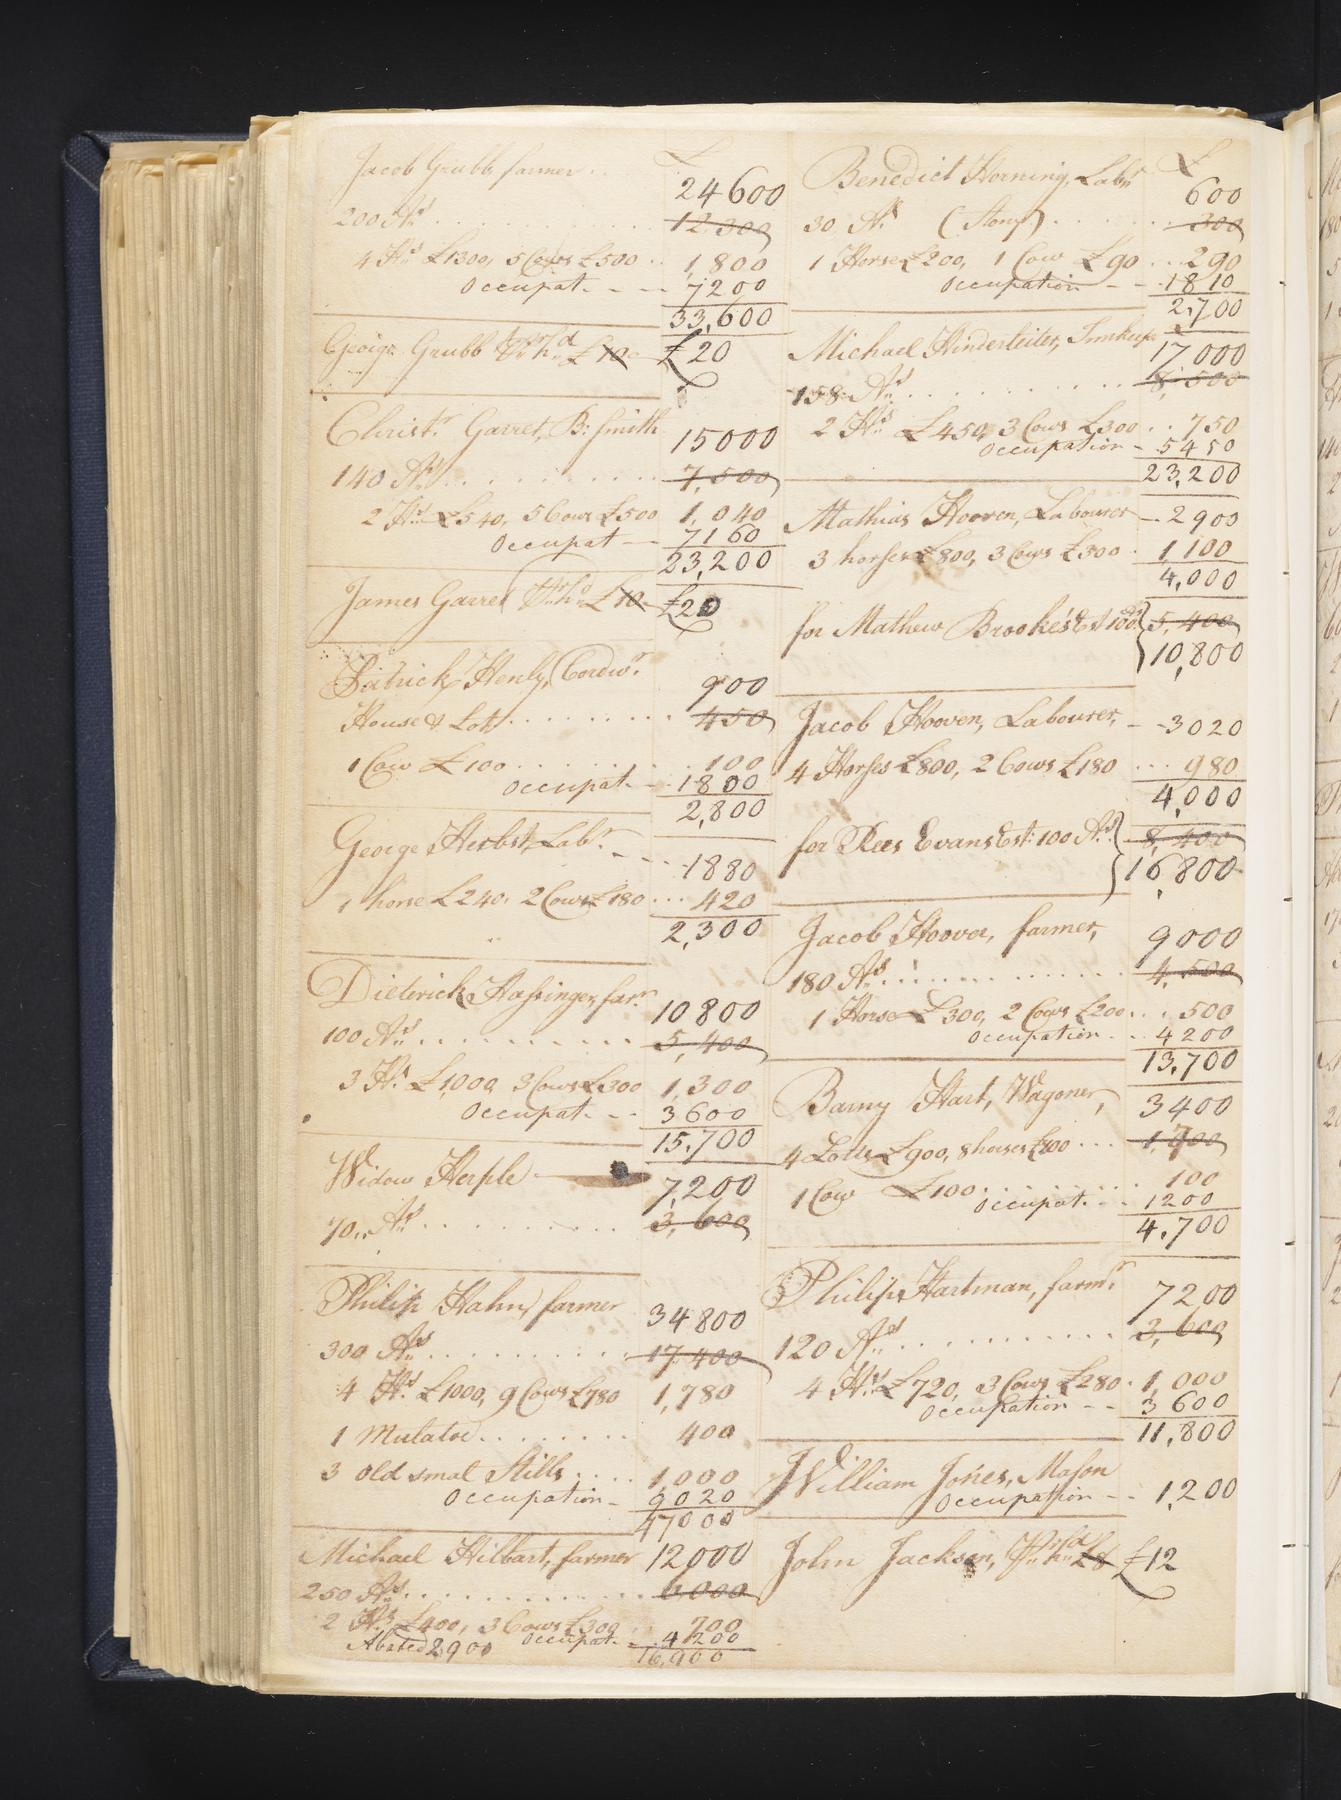 Jacob Grubb farmer .. £
24600
200 A.s . . . . 12 300
4 H.s £1300, 5 Cows £500 .. 1,800
Occupat. - - - 7200
33,600
George Grubb Fr. h.d £10 £20
Christ.r Garret, B: Smith
15000
140 A.s . . . . 7,500
2 H.s £540, 5 Cows £500 1,040
Occupat - - 7160
23,200
James Garret Fr. h.d £10 £20
Patrick Henly, Cordw.r
900
House & Lott . . . . 450
1 Cow £100 . . . . 100
Occupat. - - 1800
2,800
George Herbst, Lab.r - - - 1880
1 horse £240, 2 Cows £180 ... 420
2,300
Dieterick Hassinger, far.r
10800
100 A.s . . . . 5,400
3 H.s £1,000, 3 Cows £300 1,300
Occupat. - - 3600
15,700
Widow Herple 7,200
70 A.s . . . . 3,600
Philip Hahn, farmer
34800
300 A.s . . . . 17,400
4 H.s £1000, 9 Cows £780 1,780
1 Mulatoe . . . . 400
3 old smal Stills .... 1,000
Occupation - 9020
47000
Michael Hilbart, farmer 12,000
250 A.s . . . . 6,000
2 H.s £400, 3 Cows £300 .. 700
Abated 2900 Occupat. - 4200
16,900
Benedict Horning, Lab.r £
600
30 A.s (Stony) . . . . 300
1 Horse £200, 1 Cow £90 ... 290
Occupation - - 1810
2,700
Michael Hinderleiter, Innkeep.r
17000
158 A.s . . . . 8,500
2 H.s £450, 3 Cows £300 .. 750
Occupation - 5450
23,200
Mathias Hooven, Labourer - 2900
3 horses £800, 3 Cows £300 . 1,100
4,000
for Mathew Brooke's Est 100 A.s } 5,400
10,800
Jacob Hooven, Labourer, - - 3020
4 Horses £800, 2 Cows £180 ... 980
4,000
for Rees Evans Est: 100 A.s } 8,400
16,800
Jacob Hoover, farmer,
9000
180 A.s . . . . 4,500
1 Horse £300, 2 Cows £200 . . . 500
Occupation . . 4200
13,700
Barny Hart, Wagoner,
3400
4 Lotts £900, 8 horses £800 ... 1,700
1 Cow £100 . . . . 100
Occupat. - - 1200
4,700
Philip Hartman, farm.r
7200
120 A.s . . . . 3,600
4 H.s £720, 3 Cows £280 . 1,000
Occupation - - 3600
11,800
William Jones, Mason
Occupation - - 1,200
John Jackson, Fr. h.d £8 £12